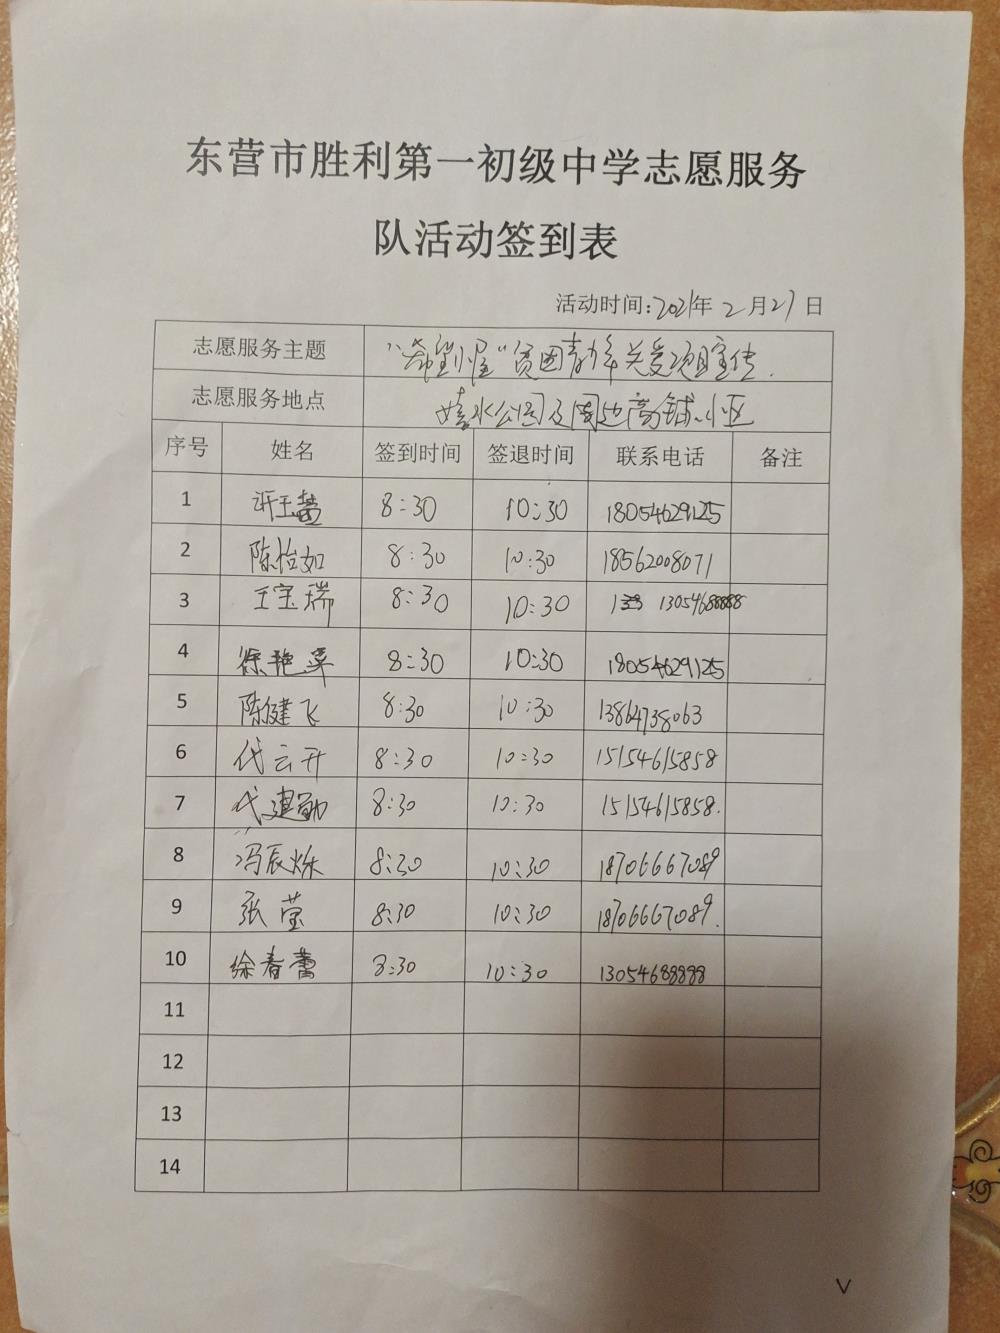 东营市胜利第一初级中学志愿服务
队活动签到表
活动时间:2021年 2 月 27 日
志愿服务主题 "希望小屋"贫困青少年关爱项目宣传.
志愿服务地点 嬉水公园及周边商铺、小区
序号 姓名 签到时间 签退时间 联系电话 备注
1 许玉 8:30 10:30 18054629125
2 陈怡如 8:30 10:30 18562008071
3 王宝瑞 8:30 10:30 13054688888
4 徐艳萍 8:30 10:30 18054629125
5 陈健飞 8:30 10:30 13864738063
6 代云开 8:30 10:30 15154615858
7 代建勋 8:30 10:30 15154615858.
8 冯辰烁 8:30 10:30 18706667089
9 张莹 8:30 10:30 18706667089.
10 徐春蕾 8:30 10:30 13054688888
11
12
13
14
V